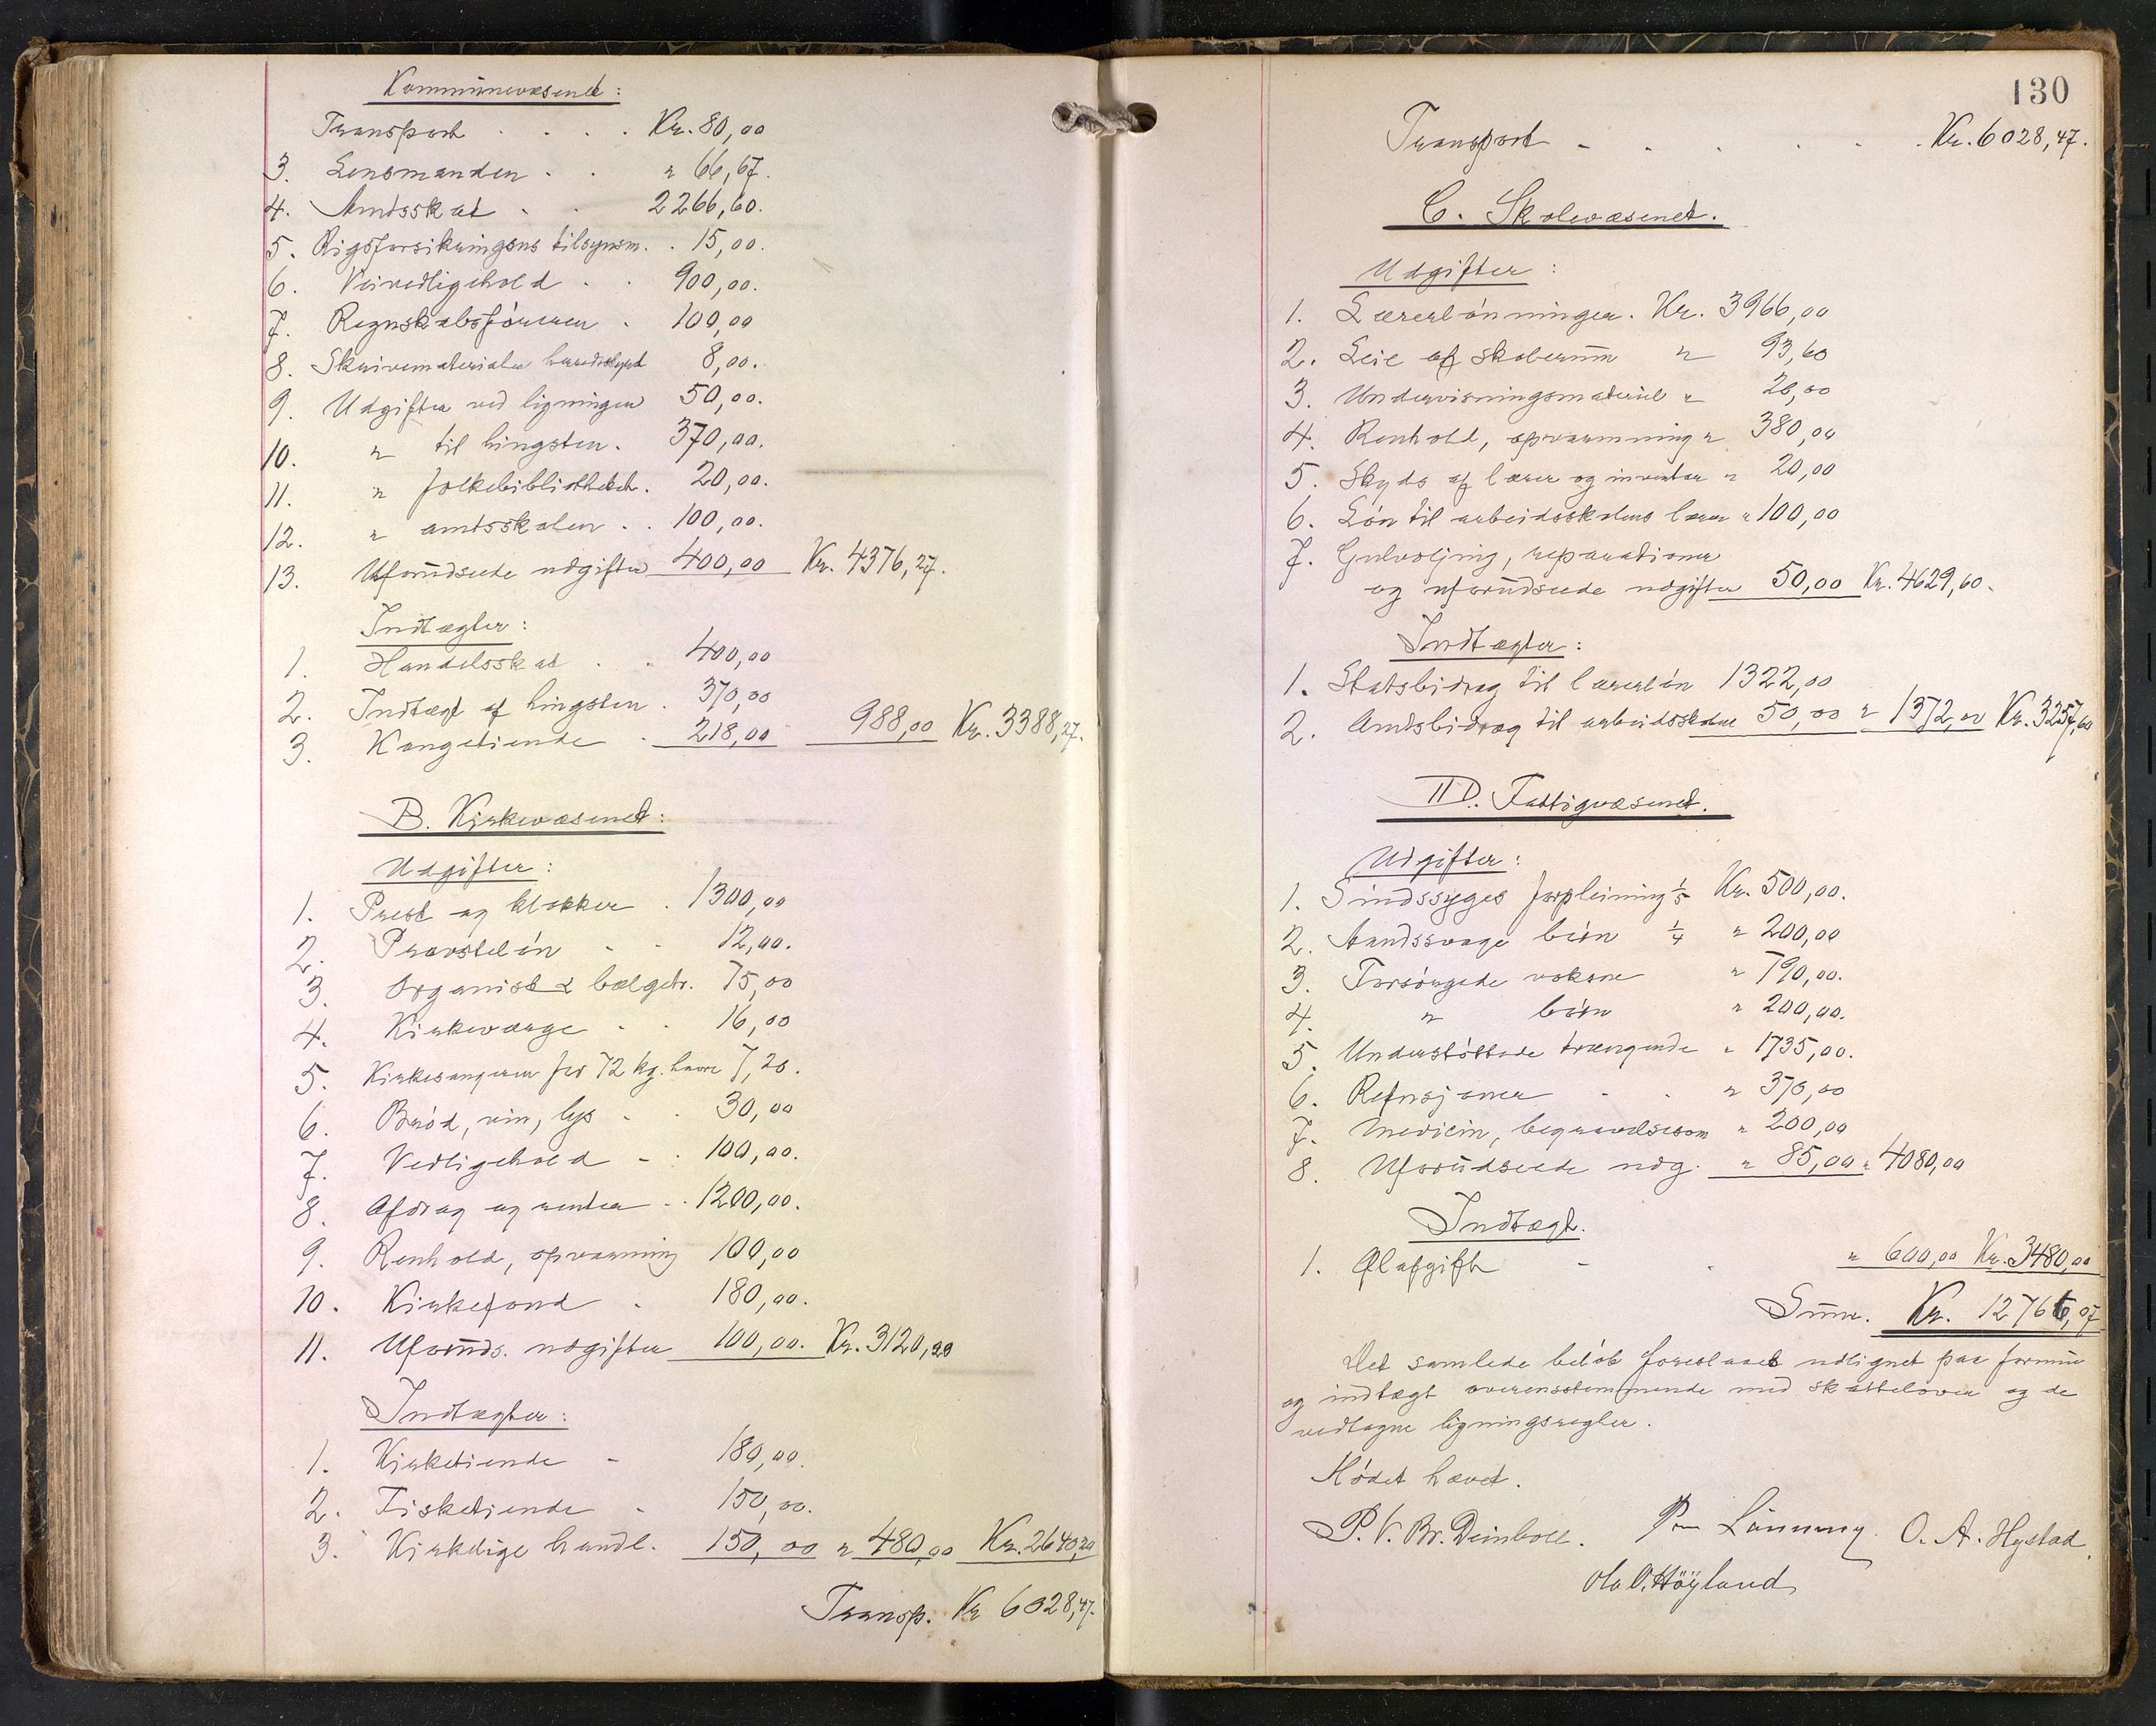 Kommunevæsenet:
Transport . . . . Kr. 80,00
3. Lensmanden . . " 66,67.
4. Amtsskat . . 2266,60.
5. Rigsforsikringens tilsynsm. . 15,00.
6. Veivedligehold . . 900,00.
7. Regnskabsføreren . 100,00
8. Skrivematerialer herredsstyret 8,00.
9. Udgifter ved ligningen 50,00.
10. " til hingsten. 370,00.
11. " folkebibliotheket. 20,00.
12. " amtsskolen . . 100,00.
13. Uforudseede udgifter 400,00 Kr. 4376,27.
Indtægter:
1. Handelsskat . . 400,00
2. Indtægt af hingsten . 370,00
3. Kongetiende . 218,00 988,00 Kr. 3388,27.
B. Kirkevæsenet:
Udgifter:
1. Prest og klokker . 1300,00
2. Provstelön - - 12,00.
3. Organist & bælgetr. 75,00
4. Kirkeværge - - 16,00
5. Kirkesangeren for 72 kg. havre 7,20.
6. Bröd, vin, lys - . 30,00
7. Vedligehold - . 100,00.
8. Afdrag og renter - . 1200,00.
9. Renhold, opvarming 100,00
10. Kirkefond . 180,00.
11. Uforuds. udgifter 100,00. Kr. 3120,20
Indtægter:
1. Kirketiende - 180,00.
2. Fisketiende - 150,00.
3. Kirkelige handl. 150,00 " 480,00 Kr. 2640,20
Transp. Kr 6028,47.
130
Transport - . . . . . Kr. 6028,47.
C. Skolevæsenet.
Udgifter:
1. Lærerlönninger. Kr. 3966,00
2. Leie af skolerum " 93,60
3. Undervisningsmateriel " 20,00
4. Renhold, opvarmning " 380,00
5. Skyds af lærer og inventar " 20,00
6. Lön til arbeidsskolens lærer " 100,00
7. Gulvoljing, reparationer
og uforudseede udgifter 50,00 Kr. 4629,60.
Indtægter:
1. Statsbidrag til lærerlön 1322,00
2. Amtsbidrag til arbeidsskolen 50,00 " 1372,00 Kr. 3257,60
D. Fattigvæsenet.
Udgifter:
1. Sindssyges forpleining 1/5 Kr. 500,00.
2. Aandssvage börn 1/4 " 200,00
3. Forsörgede voksne " 790,00.
4. " börn " 200,00.
5. Understöttede trængende " 1735,00.
6. Refusjoner - . " 370,00
7. Medicin, begravelsesom " 200,00
8. Uforudseede udg. " 85,00 " 4080,00
Indtægt.
1. Ølafgift - . " 600,00 Kr. 3480,00
Sum. Kr. 12766,07
Det samlede belöb foreslaaes udlignet paa formue
og indtægt overensstemmende med skatteloven og de
vedtagne ligningsregler.
Mödet hævet.
P. V. Br. Deinboll. Lönning. O. A. Hystad.
Ola O. Höyland